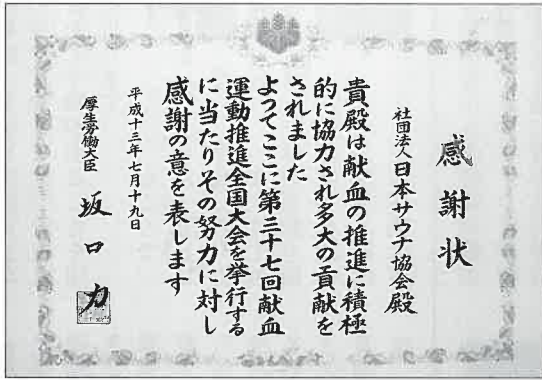 感謝状
社団法人日本サウナ協会殿
貴殿は献血の推進に積極
的に協力され多大の貢献を
されました
よつてここに第三十七回献血
運動推進全国大会を挙行する
に当たりその努力に対し
感謝の意を表します
平成十三年七月十九日
厚生労働大臣 坂口力